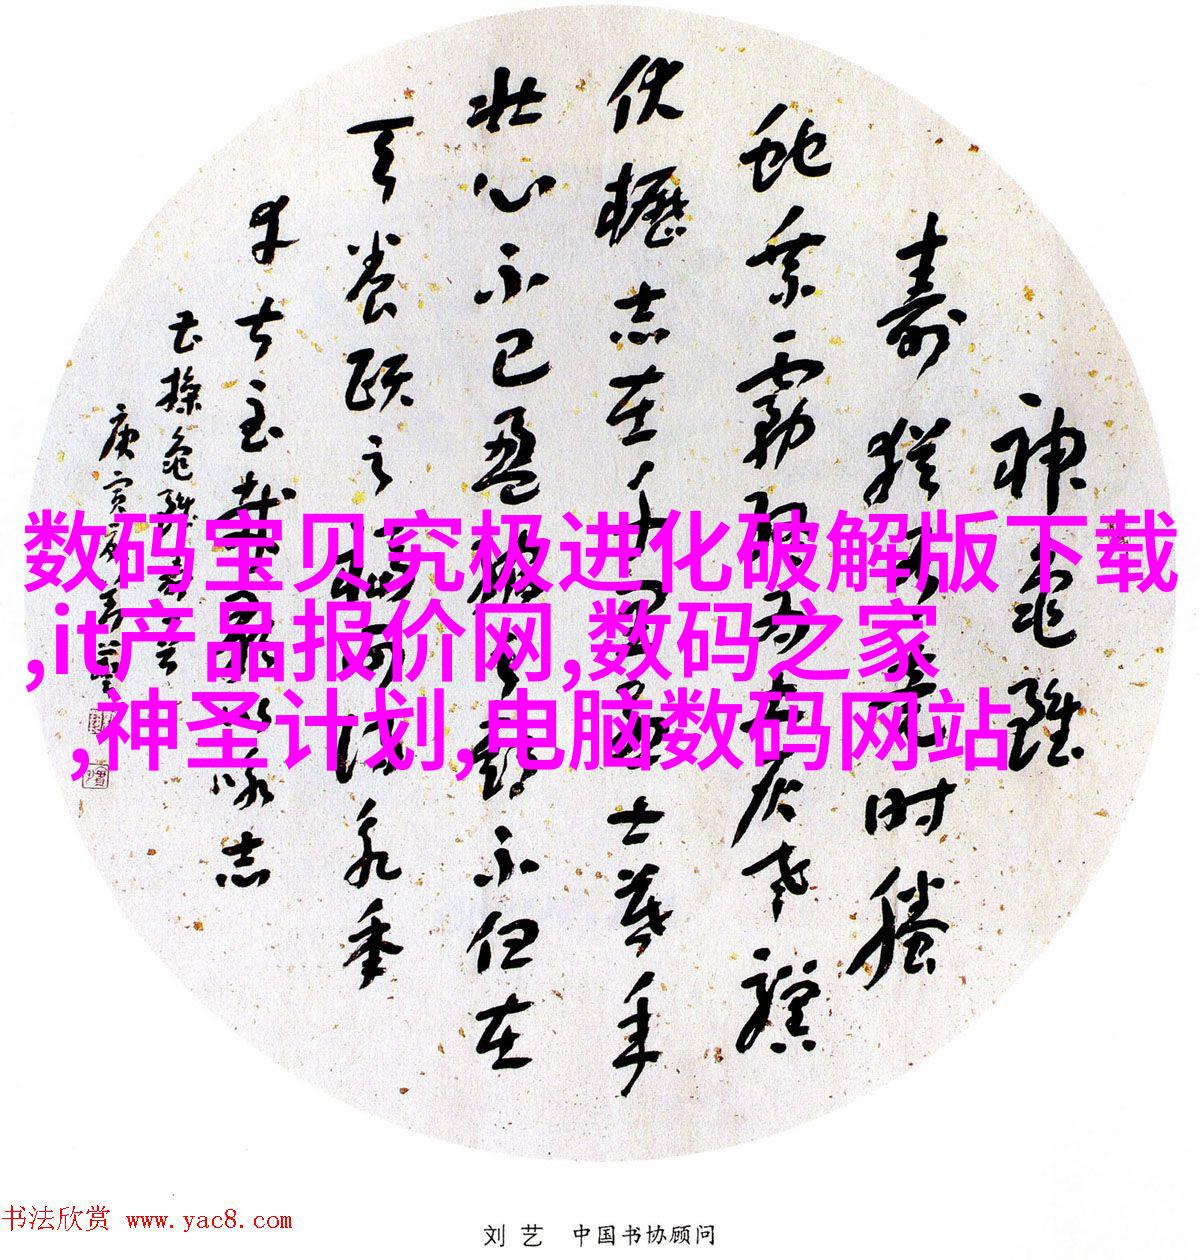 数码宝贝究极进化破解版下载
,it产品报价网,数码之家
,神圣计划,电脑数码网站
神龟雖
壽犹有竟时騰
蛇乘霧终为土灰老骥
伏櫪志在千里烈士暮年
壮心不已盈缩之期不但在
天养颐之福可得永年
幸甚至哉歌以咏志
曹操龟雖壽
庚寅夏刘艺
书法欣赏 www.yac8.com
刘艺 中国书协顾问